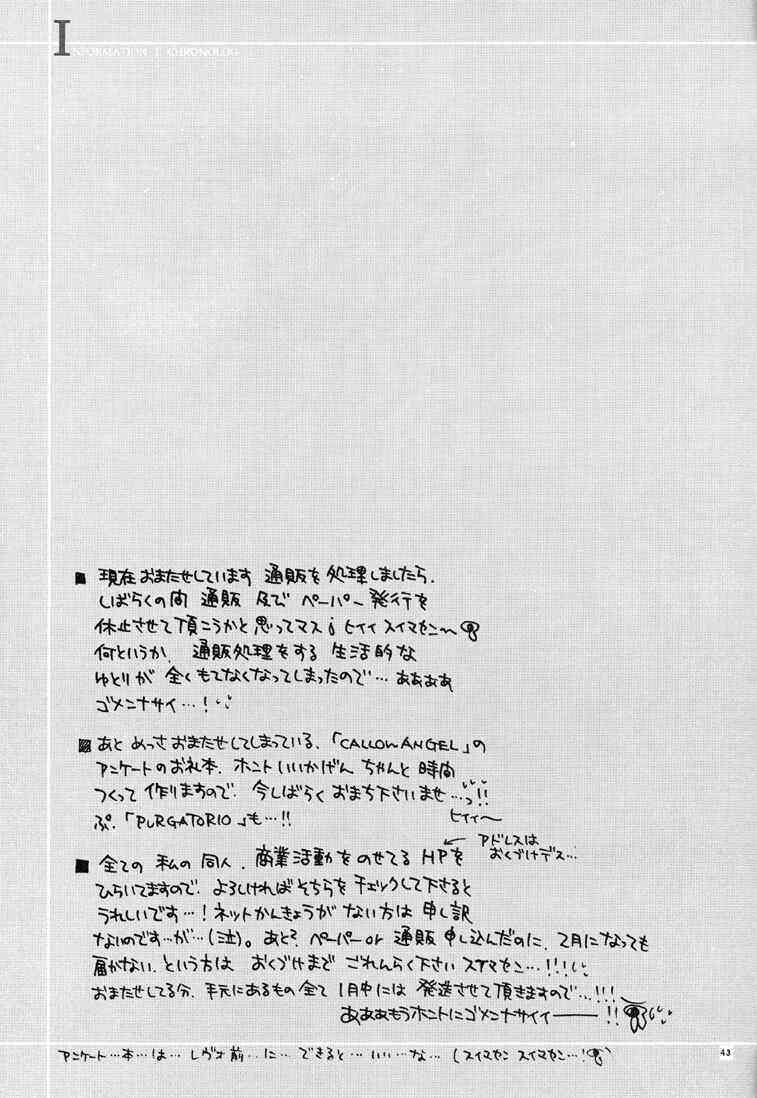 INFORMATION I CHRONOLOG
■ 現在おまたせしています 通販を処理しましたら、
しばらくの間 通販 及び ペーパー発行を
休止させて頂こうかと思ってマス¡ ヒイィ スイマセン〜
何というか、通販処理をする 生活的な
ゆとりが 全くもてなくなってしまったので…ああああ
ゴメンナサイ…!
▨ あと めっさおまたせしてしまっている、「CALLOW ANGEL」の
アンケートのお礼本、ホントいいかげん ちゃんと 時間
つくって 作りますので、今しばらく おまち下さいませ…っ!!
ヒイィ〜
ぷ、「PURGATORIO」も…!!
← アドレスは
おくづけデス…
■ 全ての 私の同人、商業活動をのせてる HPを
ひらいてますので、よろしければそちらをチェックして下さると
うれしいです…!ネットかんきょうがない方は 申し訳
ないのです…が…(泣)。あと、ペーパーor 通販 申し込んだのに、2月になっても
届かない、という方は おくづけまで ごれんらく下さい スイマセン…!!!
おまたせしてる分、手元にあるもの全て 1月中には 発送させて頂きますので…!!!
あああもうホントにゴメンナサイィ――!!
アンケート…本…は… レヴォ前…に… できると…いい…な…(スイマセン スイマセン…!
43